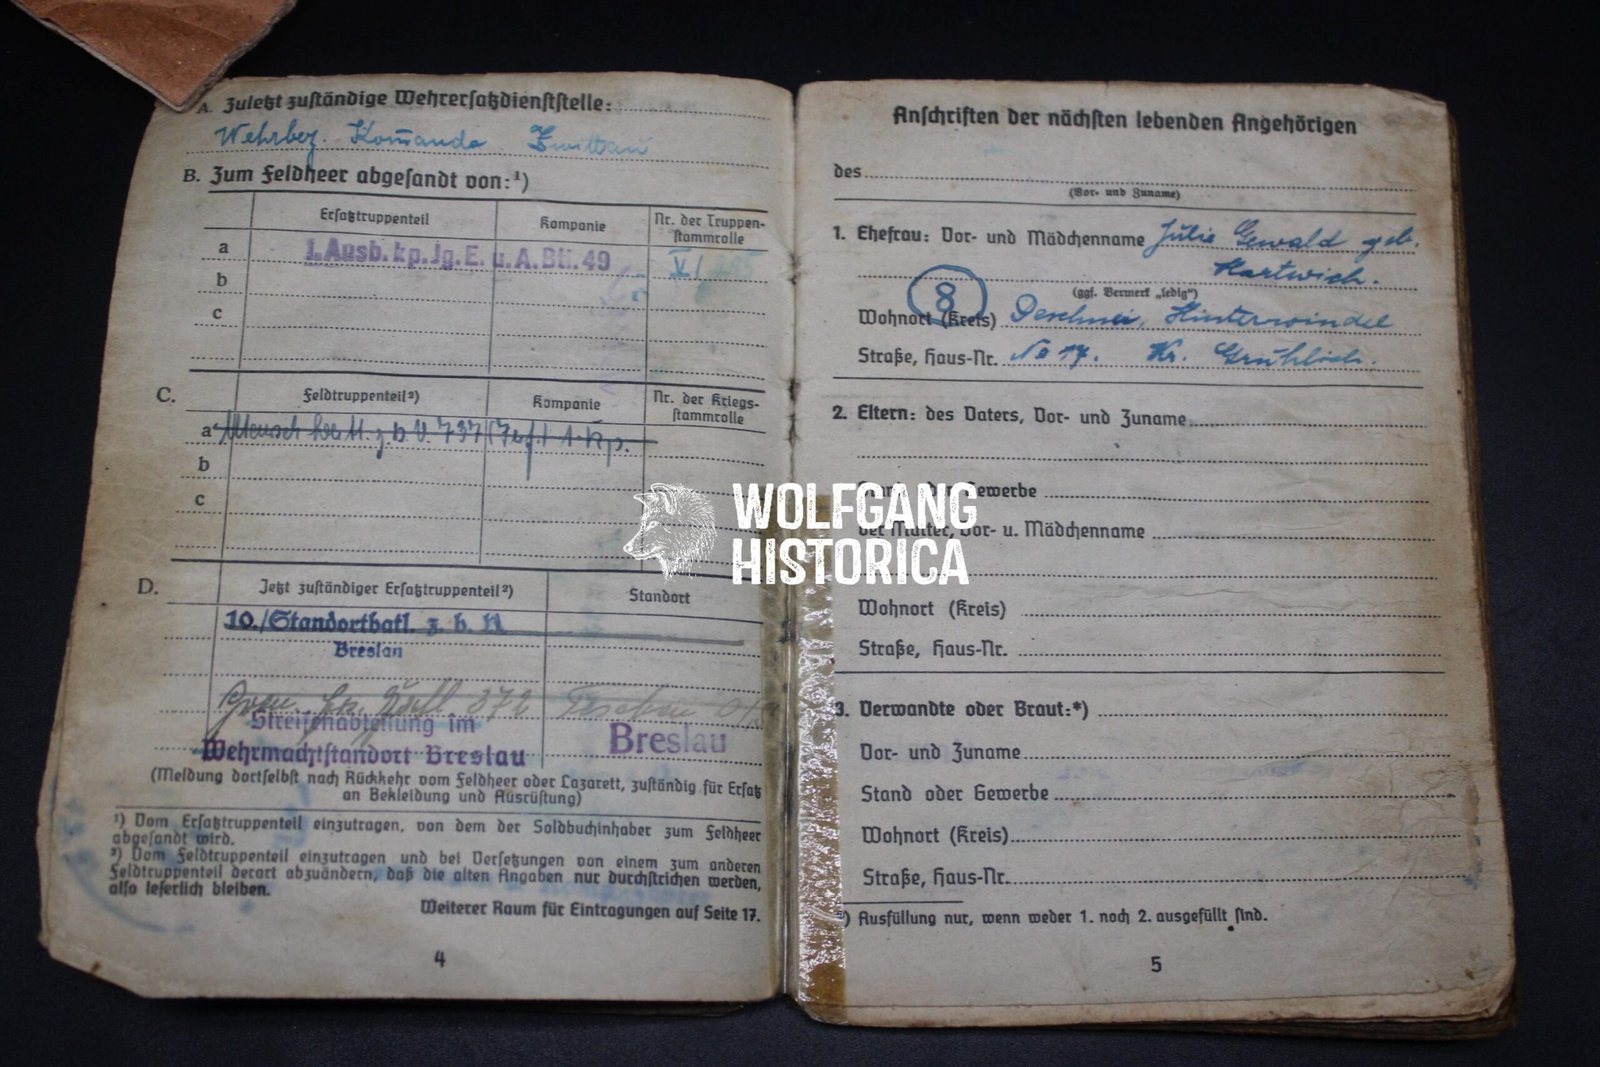 A. Zuletzt zuständige Wehrersatzdienststelle:
Wehrbez. Komando Zwittau
B. Zum Feldheer abgesandt von:¹)
Ersatztruppenteil
Kompanie
Nr. der Truppen-
stammrolle
a 1. Ausb. kp. Jg. E. u. A. Btl. 49
b
c
C.
Feldtruppenteil²)
Kompanie
Nr. der Kriegs-
stammrolle
a z b V. 737 1. Kp.
b
c
D.
Jetzt zuständiger Ersatztruppenteil²)
Standort
10./Standortbatl. z. b. V.
Breslau
372 Teschen
Streifenabteilung im
Wehrmachtstandort Breslau
Breslau
(Meldung dortselbst nach Rückkehr vom Feldheer oder Lazarett, zuständig für Ersatz
an Bekleidung und Ausrüstung)
¹) Vom Ersatztruppenteil einzutragen, von dem der Soldbuchinhaber zum Feldheer
abgesandt wird.
²) Vom Feldtruppenteil einzutragen und bei Versetzungen von einem zum anderen
Feldtruppenteil derart abzuändern, daß die alten Angaben nur durchstrichen werden,
also leserlich bleiben.
Weiterer Raum für Eintragungen auf Seite 17.
4
Anschriften der nächsten lebenden Angehörigen
des
(Vor- und Zuname)
1. Ehefrau: Vor- und Mädchenname Julie Gewald geb.
Hartwich.
(ggf. Vermerk „ledig“)
8
Wohnort (Kreis) Deschnei, Hinterwinkel
Straße, Haus-Nr. No 17. Kr. Grulich.
2. Eltern: des Vaters, Vor- und Zuname
Gewerbe
der Mutter, Vor- u. Mädchenname
Wohnort (Kreis)
Straße, Haus-Nr.
3. Verwandte oder Braut:*)
Vor- und Zuname
Stand oder Gewerbe
Wohnort (Kreis)
Straße, Haus-Nr.
*) Ausfüllung nur, wenn weder 1. noch 2. ausgefüllt sind.
5
WOLFGANG
HISTORICA